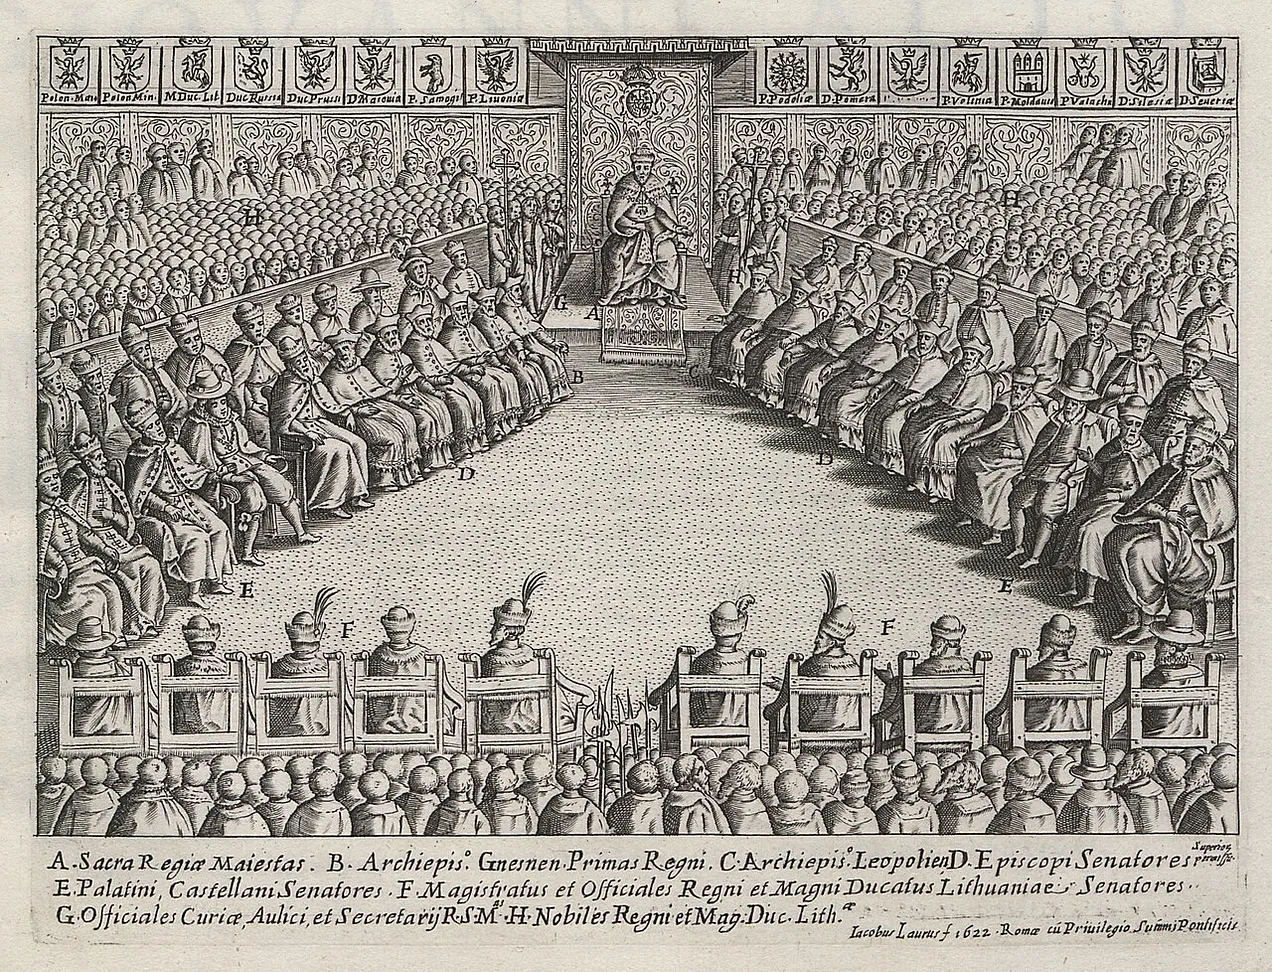 Polon·Mai Polon·Min· M·Duc·Lit Duc·Russiæ Duc·Prussi D·Masouiæ P·Samogi P·Liuoniæ P·Podoliæ D·Pomera P·Voliniæ P·Moldauiæ P·Valachi D·Slesiæ D·Seueriæ
H H
H
G A
B C
D D
E E
F F
A·Sacra Regiæ Maiestas· B· Archiepisº· Gnesnen·Primas Regni· C·Archiepisº·Leopolien D·Episcopi Senatores
E·Palatini, Castellani Senatores · F·Magistratus et Officiales Regni et Magni Ducatus Lithuaniae Senatores··
G·Officiales Curiæ, Aulici, et Secretarij R·S·M·tis·H·Nobiles Regni et Mag·Duc·Lith·æ
Superior permissu·
Iacobus Laurus f 1622 · Romæ cū Priuilegio Summi Pontificis